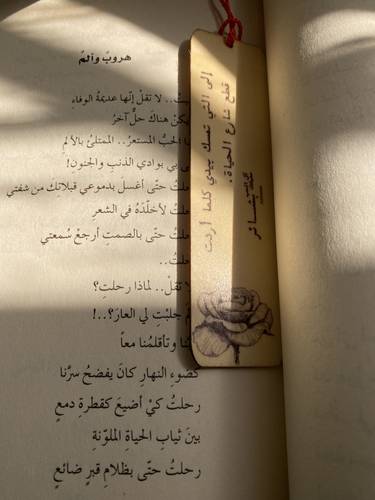 هروبٌ وألمٌ
لا تقلْ إنّها عديمةُ الوفاءِ
هناكَ حلٌّ آخرُ
الحبُّ المستعرُ.. الممتلئُ بالألمِ
بي بوادي الذنبِ والجنونِ!
حتّى أغسلَ بدموعي قبلاتكَ من شفتي
لأخلّدَهُ في الشعرِ
حتّى بالصمتِ أرجعْ سُمعتي
تقلْ.. لماذا رحلتِ؟
جلبْتِ لي العارَ؟..!
وتأقلمُنا معاً
كضوءِ النهارِ كانَ يفضحُ سرَّنا
رحلتُ كيْ أضيعَ كقطرةِ دمعٍ
بينَ ثيابِ الحياةِ الملوّنةِ
رحلتُ حتّى بظلامِ قبرٍ ضائعٍ
إلى التي تمسك بيدي كلما أردت
قطع شارع الحياة.
بشائر